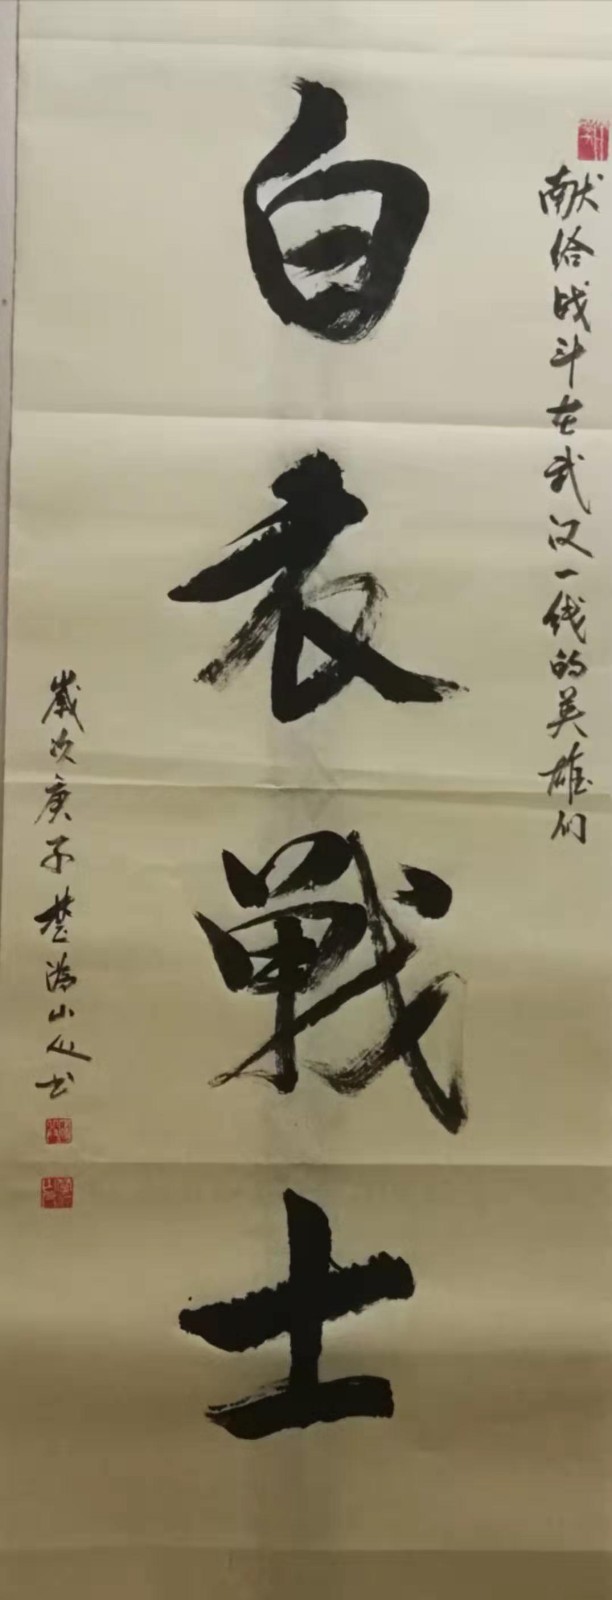 献给战斗在武汉一线的英雄们
白衣戰士
歲次庚子楚山人书